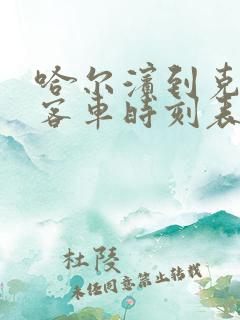 哈尔滨到克
客车时刻表
杜陵
未经同意禁止转载